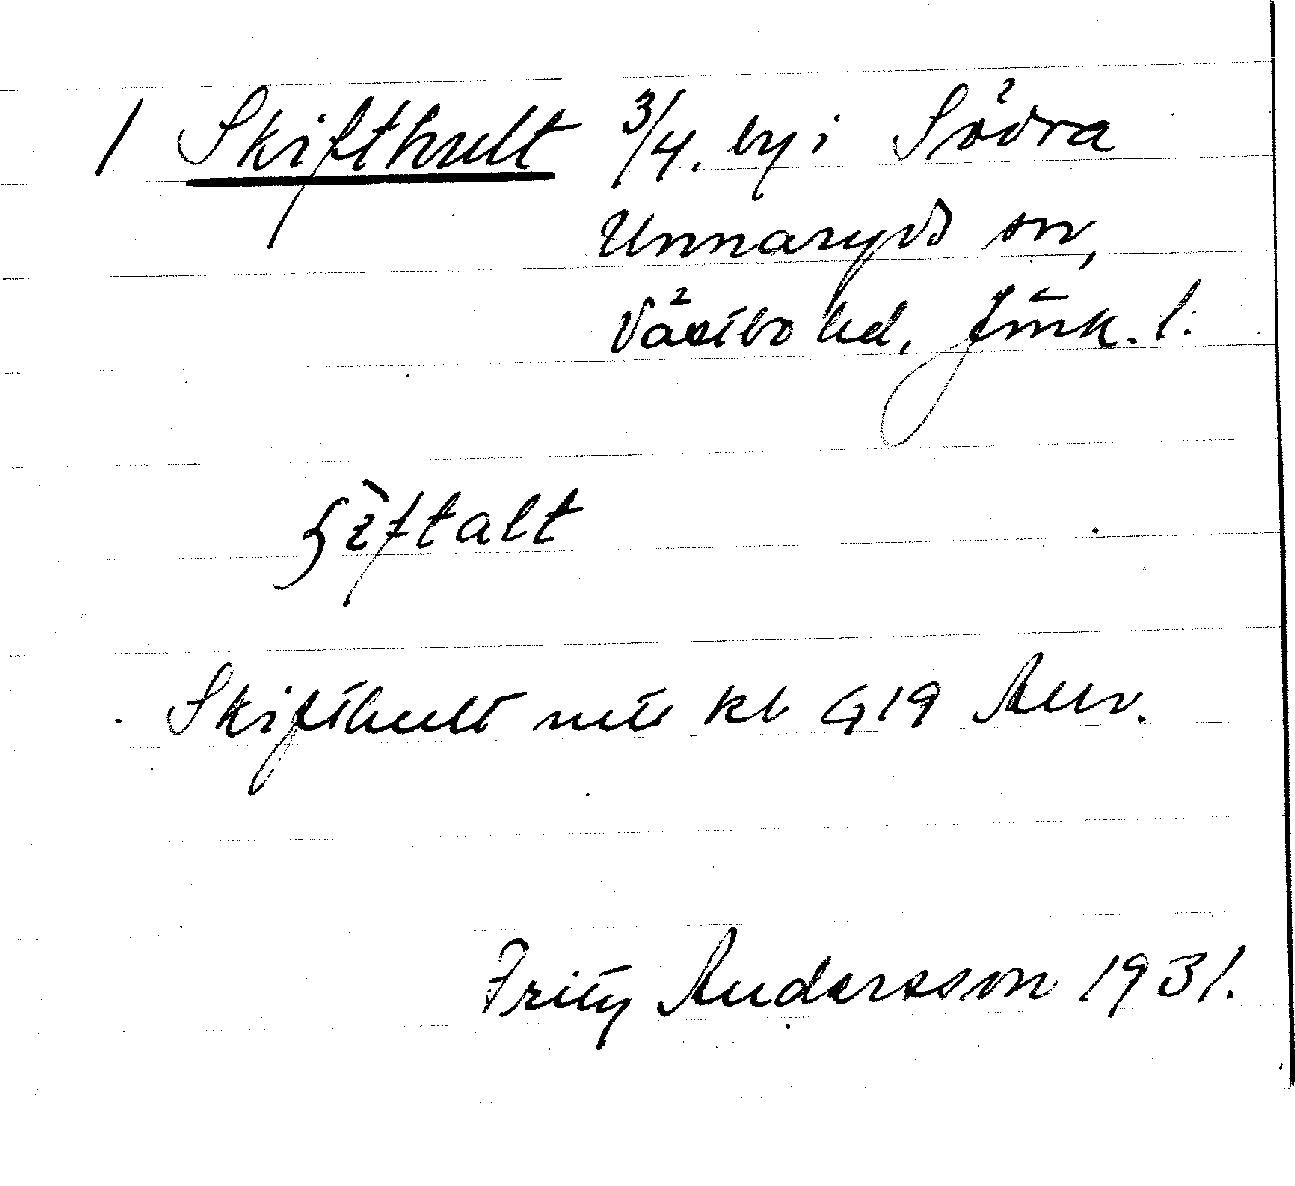 1 Skifthult 3/4. by i Södra
Unnaryds sn,
Västbo hd, Jönk. l.
Skifthult
kb 419
Fritz Andersson 1931.